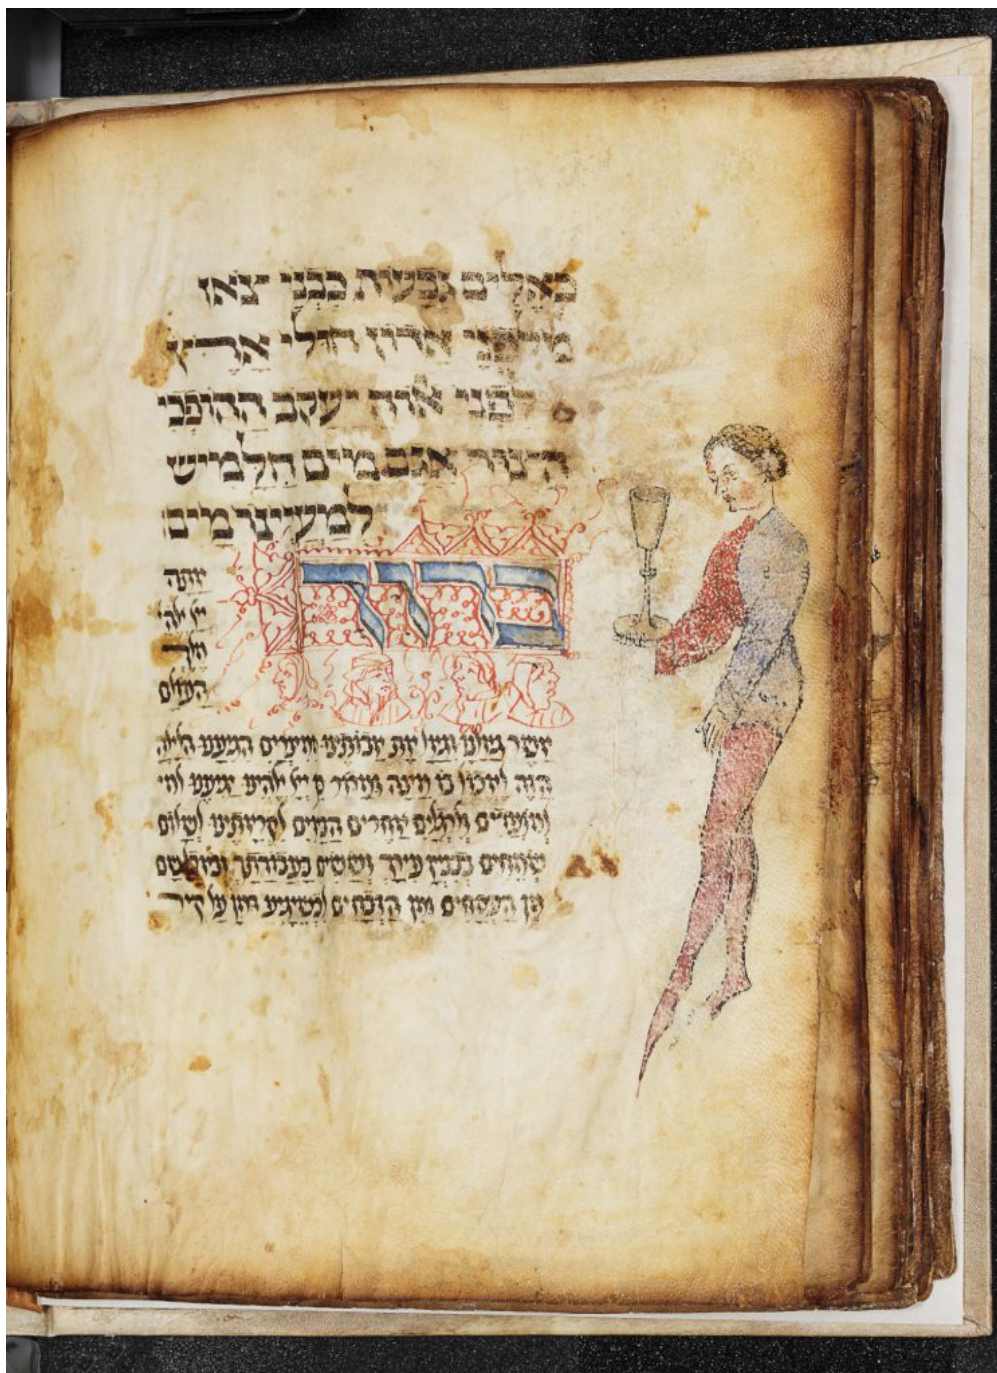 כְּאֵלִים גְּבָעוֹת כִּבְנֵי צֹאן
מִלִּפְנֵי אָדוֹן חוּלִי אָרֶץ
לפני אלוה יעקב ההופכי
הצור אגם מים חלמיש
למעיינו מים
ברוך אתה
יי אלהי'
מלך
העולם
אשר גאלנו וגאל את אבותינו ממצרים הגיענו הלילה
הזה לאכול בו מצה ומרור כן יי אלהינו יגיענו
למועדים ולרגלים אחרים הבאים לקראתינו לשלום
שמחים בבנין עירך וששים בעבודתך ונאכל שם
מן הפסחים ומן הזבחים כשיגיע דמן על קיר